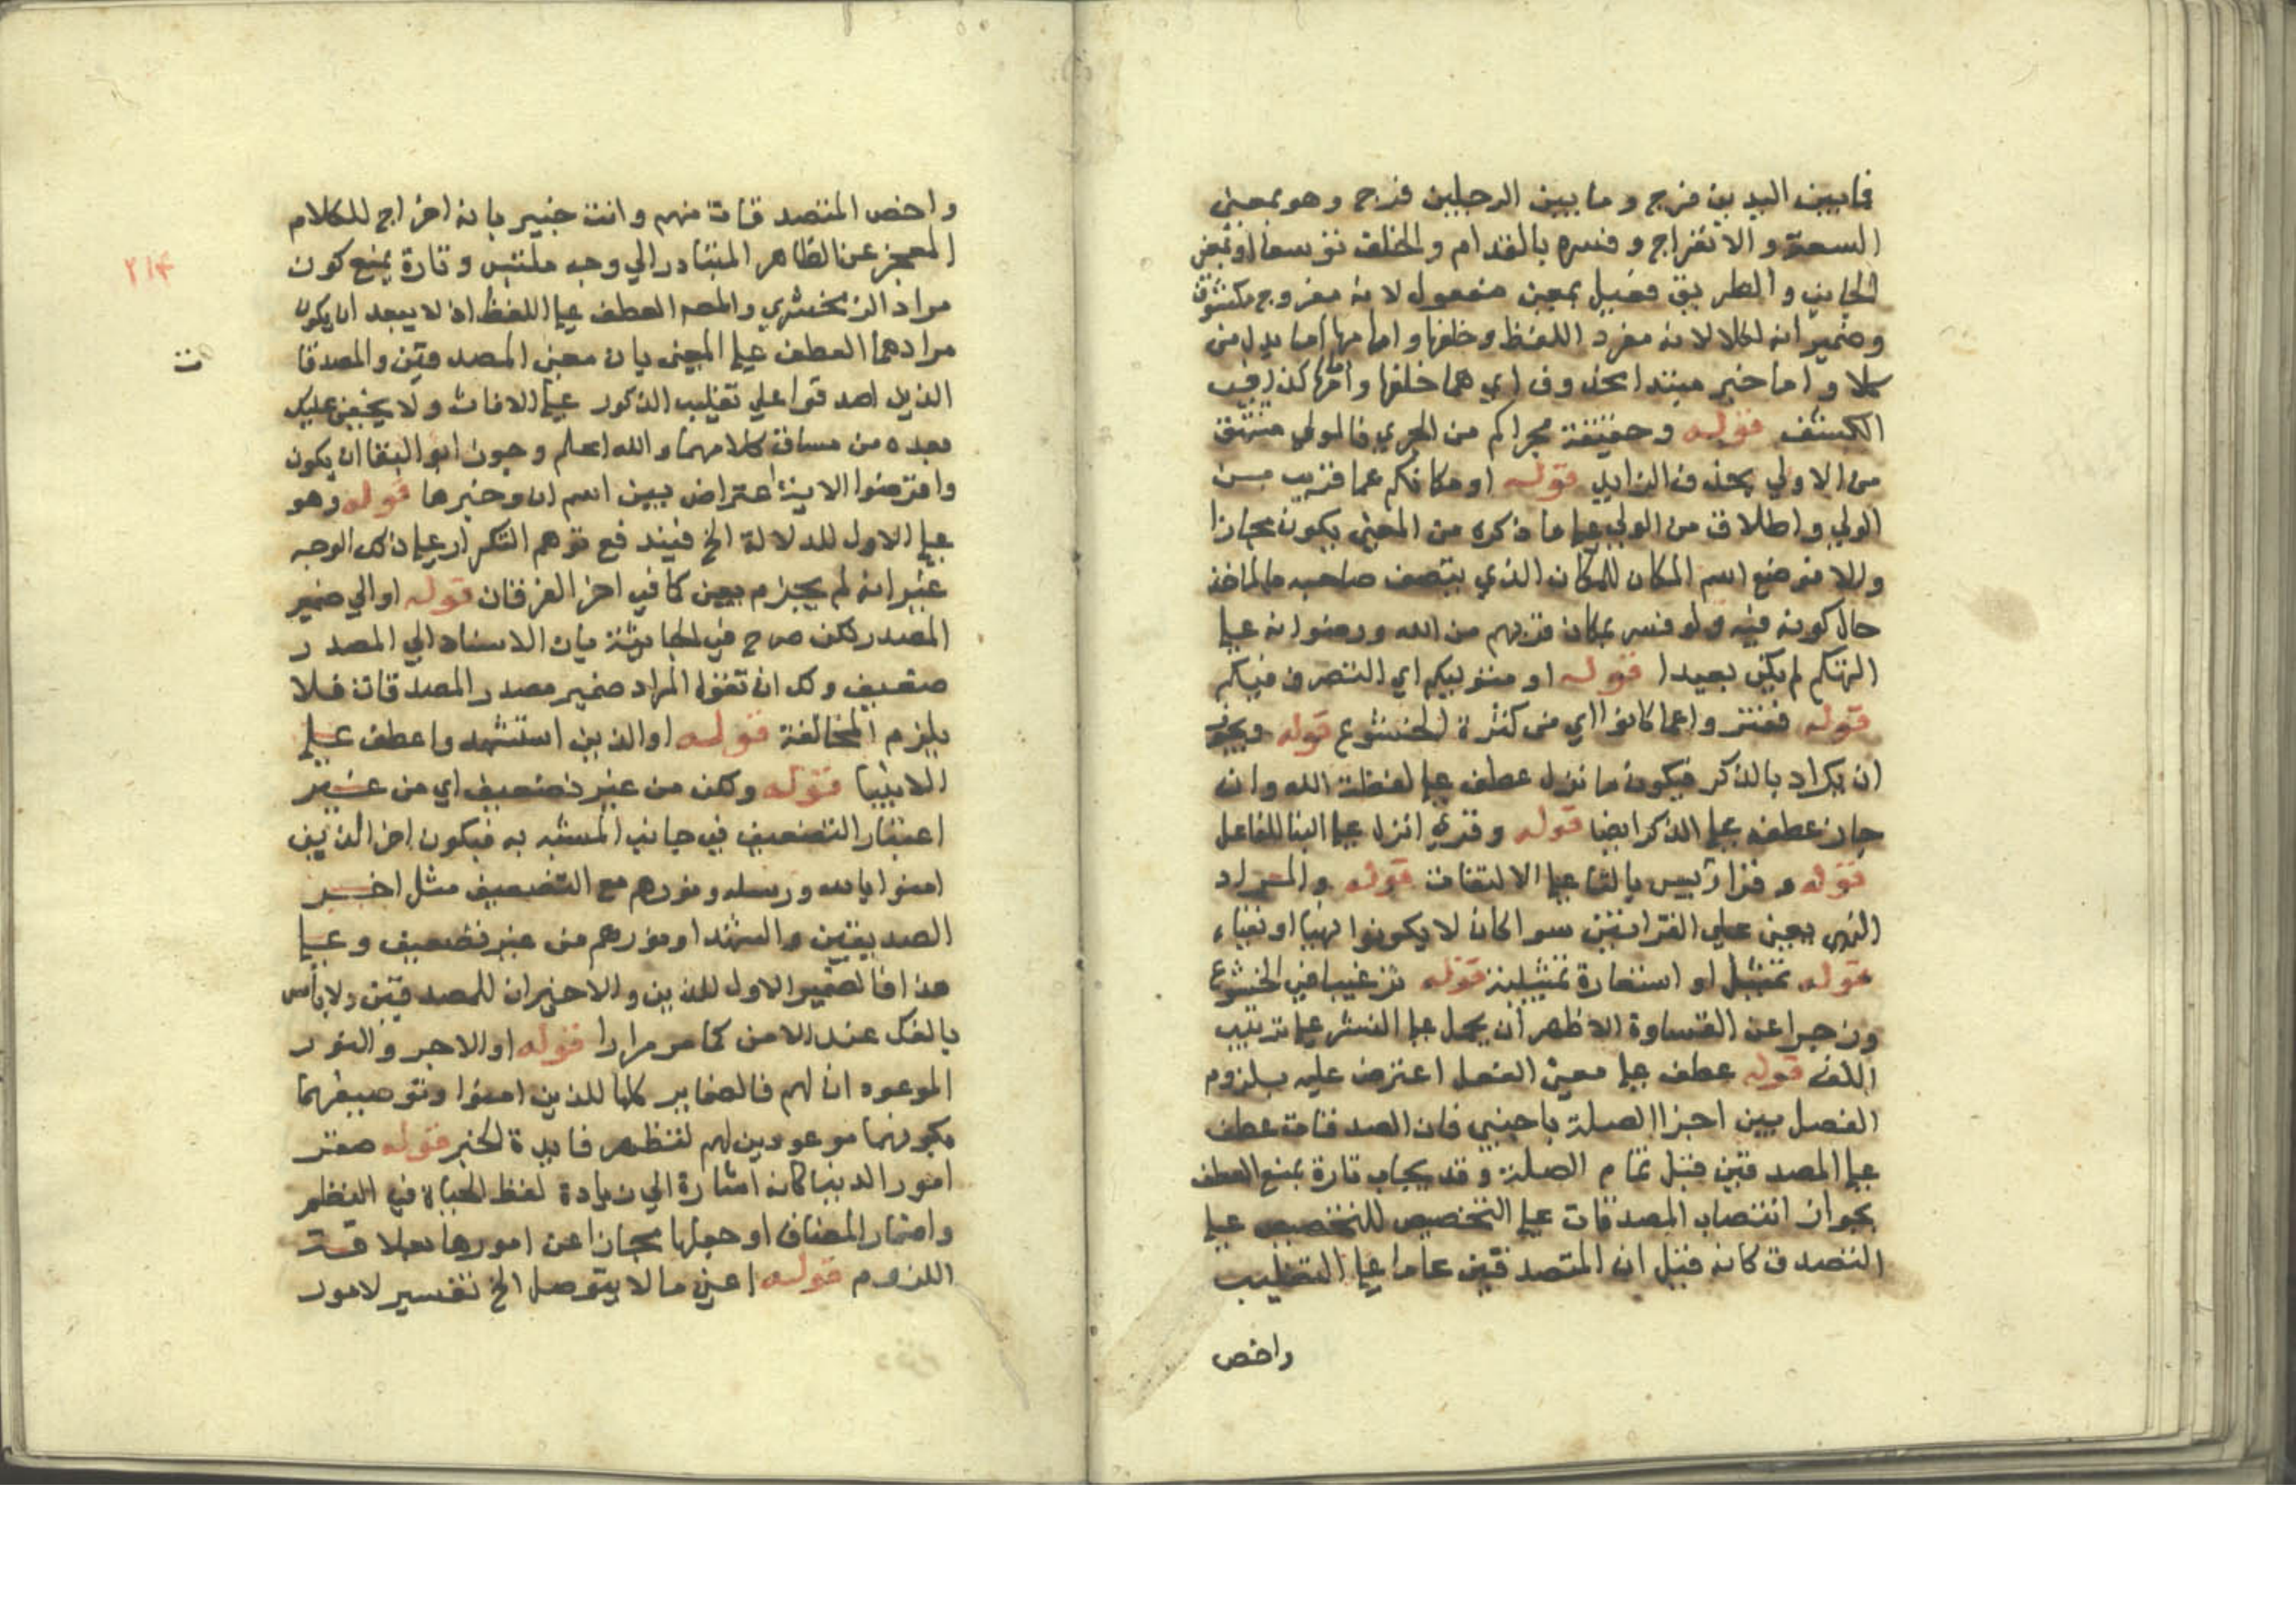 فما بين اليدين فرج وما بين الرجلين فرج وهو بمعنى
السعة والانفراج وفسره بالقدام والخلف توسعا او بمعنى
الجانب والطريق فعيل بمعنى مفعول لانه مفروج مكشوف
وضمير انه لكلا لانه مفرد اللفظ وخلفها وامامها اما بدل من
كلا واما خبر مبتدا محذوف اي هما خلفها وامامها كذا في
الكشف قوله وحقيقة مجراكم من الحري فالمولى مشتق
من الاولى بحذف الزايد قوله او مكانكم عما قريب من
الولي واطلاق من الولي على ما ذكره من المعنى يكون مجازا
والا فوضع اسم المكان للمكان الذي يتصف صاحبه بالماخذ
حال كونه فيه ولو فسر بمكان قربهم من الله ورضوانه على
التهكم لم يكن بعيدا قوله او متوليكم اي المتصرف فيكم
قوله ففتروا عما كانوا اي من كثرة الخشوع قوله ويجوز
ان يراد بالذكر فيكون ما نزل عطف على لفظة الله وان
جاز عطفه على الذكر ايضا قوله وقرئ انزل على البنا للفاعل
قوله وقرا رويس بالتا على الالتفات قوله والمراد
النهي يعني على القراتين سوا كان لا يكونوا نهيا او نفياء
قوله تمثيل او استعارة تمثيلية قوله ترغيبا في الخشوع
وزجرا عن القساوة الاظهر ان يحمل على النشر على ترتيب
اللف قوله عطف على معنى الفعل اعترض عليه بلزوم
الفصل بين اجزا الصلة باجنبي فان المصدقات عطف
على المصدقين قبل تمام الصلة وقد يجاب تارة بمنع العطف
بجواز انتصاب المصدقات على التخصيص للتخصيص على
التصدق كانه قيل ان المتصدقين عاما على التغليب
واخص
واخص المتصدقات منهم وانت خبير بانه اخراج للكلام
المعجز عن الظاهر المتبادر الي وجه ملتبس وتارة بمنع كون
٢١٤
مراد الزمخشري والمصه العطف على اللفظ اذ لا يبعد ان يكون
مرادهما العطف على المعنى بان معنى المصدقين والمصدقا
ت
الذين اصدقوا علي تغليب الذكور على الاناث ولا يخفى عليك
بعده من مساق كلامهما والله اعلم وجوز ابو البقا ان يكون
واقرضوا الاية اعتراض بين اسم ان وخبرها قوله وهو
على الاول للدلالة الخ فيندفع توهم التكرار على ذلك الوجه
غير انه لم يجزم بعين كما في اخر الفرقان قوله او الي ضمير
المصدر لكن صرح في الجاثية بان الاسناد الي المصدر
ضعيف ولك ان تقول المراد ضمير مصدر المصدقات فلا
يلزم المخالفة قوله او الذين استشهدوا عطف على
الانبيا قوله ولكن من غير تضعيف اي من غير
اعتبار التضعيف في جانب المشبه به فيكون اجر الذين
امنوا بالله ورسله ونورهم مع التضعيف مثل اجر
الصديقين والشهدا ونورهم من غير تضعيف وعلى
هذا فالضمير الاول للذين والاخيران للمصدقين ولا باس
بالفك عند الامن كما مر مرارا قوله او الاجر والنور
الموعودان لهم فالضماير كلها للذين امنوا وتوصيفهما
بكونهما موعودين لهم لتظهر فايدة الخبر قوله حقر
امور الدنيا كانه اشارة الي زيادة لفظ الحياة في النظم
واضمار المضاف او جعلها مجازا عن امورها بعلاقة
اللزوم قوله اعني ما لا يتوصل الخ تفسير لامور